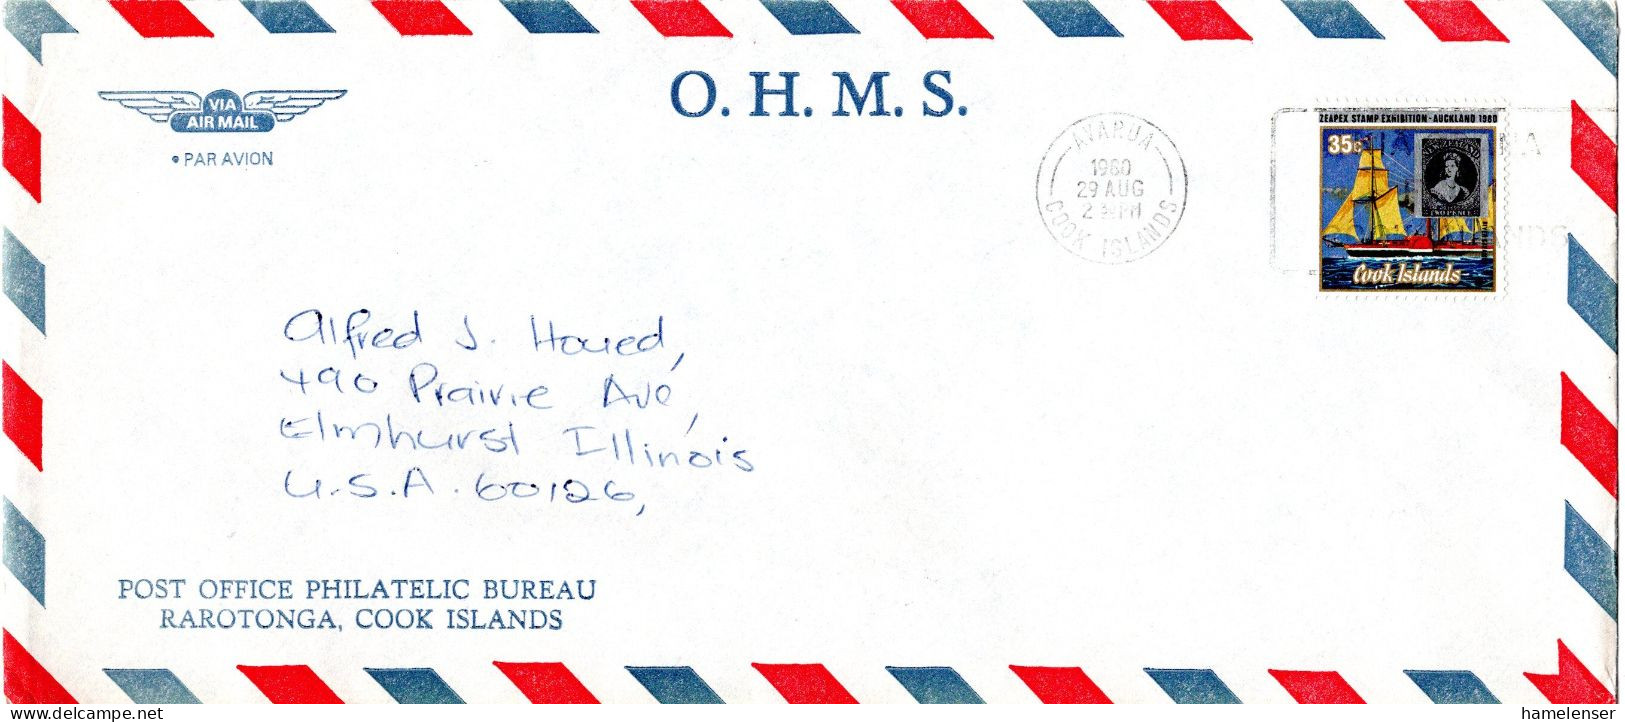 O. H. M. S.
VIA
AIR MAIL
• PAR AVION
AVARUA
1980
29 AUG
2 PM
COOK ISLANDS
ZEAPEX STAMP EXHIBITION - AUCKLAND 1980
35c
NEW ZEALAND
TWO PENCE
Cook Islands
Alfred J. Houed,
490 Prairie Ave,
Elmhurst Illinois
U.S.A. 60126,
POST OFFICE PHILATELIC BUREAU
RAROTONGA, COOK ISLANDS
www.delcampe.net
hamelenser